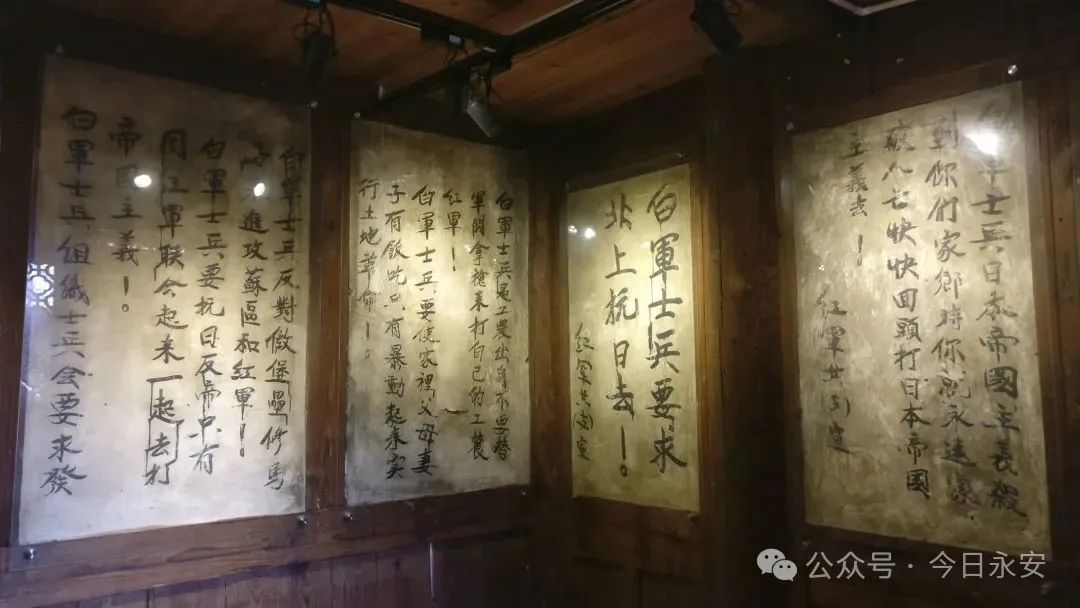 白軍士兵日本帝國主義殺
到你们家鄉時你就永遠
快快回頭打日本帝國
主義去！
紅軍
白軍士兵要求
北上抗日去！。
紅军
白軍士兵是工農出身不要替
軍閥拿槍来打自己的工農
紅軍！
白軍士兵要使家裡父母妻
子有飯吃只有暴動起来实
行土地革命！。
白軍士兵反對做堡壘修馬
進攻蘇區和紅軍！
白軍士兵要抗日反帝只有
同红軍联合起来一起去打
帝国主義！。
白軍士兵組織士兵会要求發
公众号·今日永安